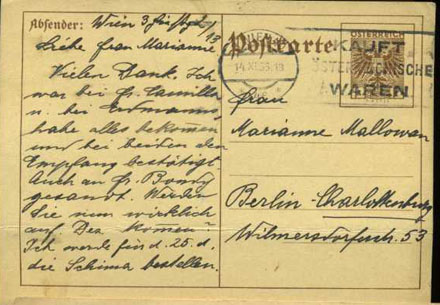 Absender: Wien 3
Liebe Frau Marianne
Vielen Dank. Ich
war bei Fr. Camilla
u. bei Erdmanns,
habe alles bekomen
und bei beiden den
Empfang bestätigt
Auch an Fr.
gesandt. Werden
Sie nun wirklich
auf Dez komen
Ich werde für d. 25. d.
die Schima bestellen.
Postkarte
ÖSTERREICH
WIEN
14.XI.35.13
KAUFT
ÖSTERREICHISCHE
WAREN
Frau
Marianne Mallowan
Berlin Charlottenburg
Wilmersdorferstr. 53